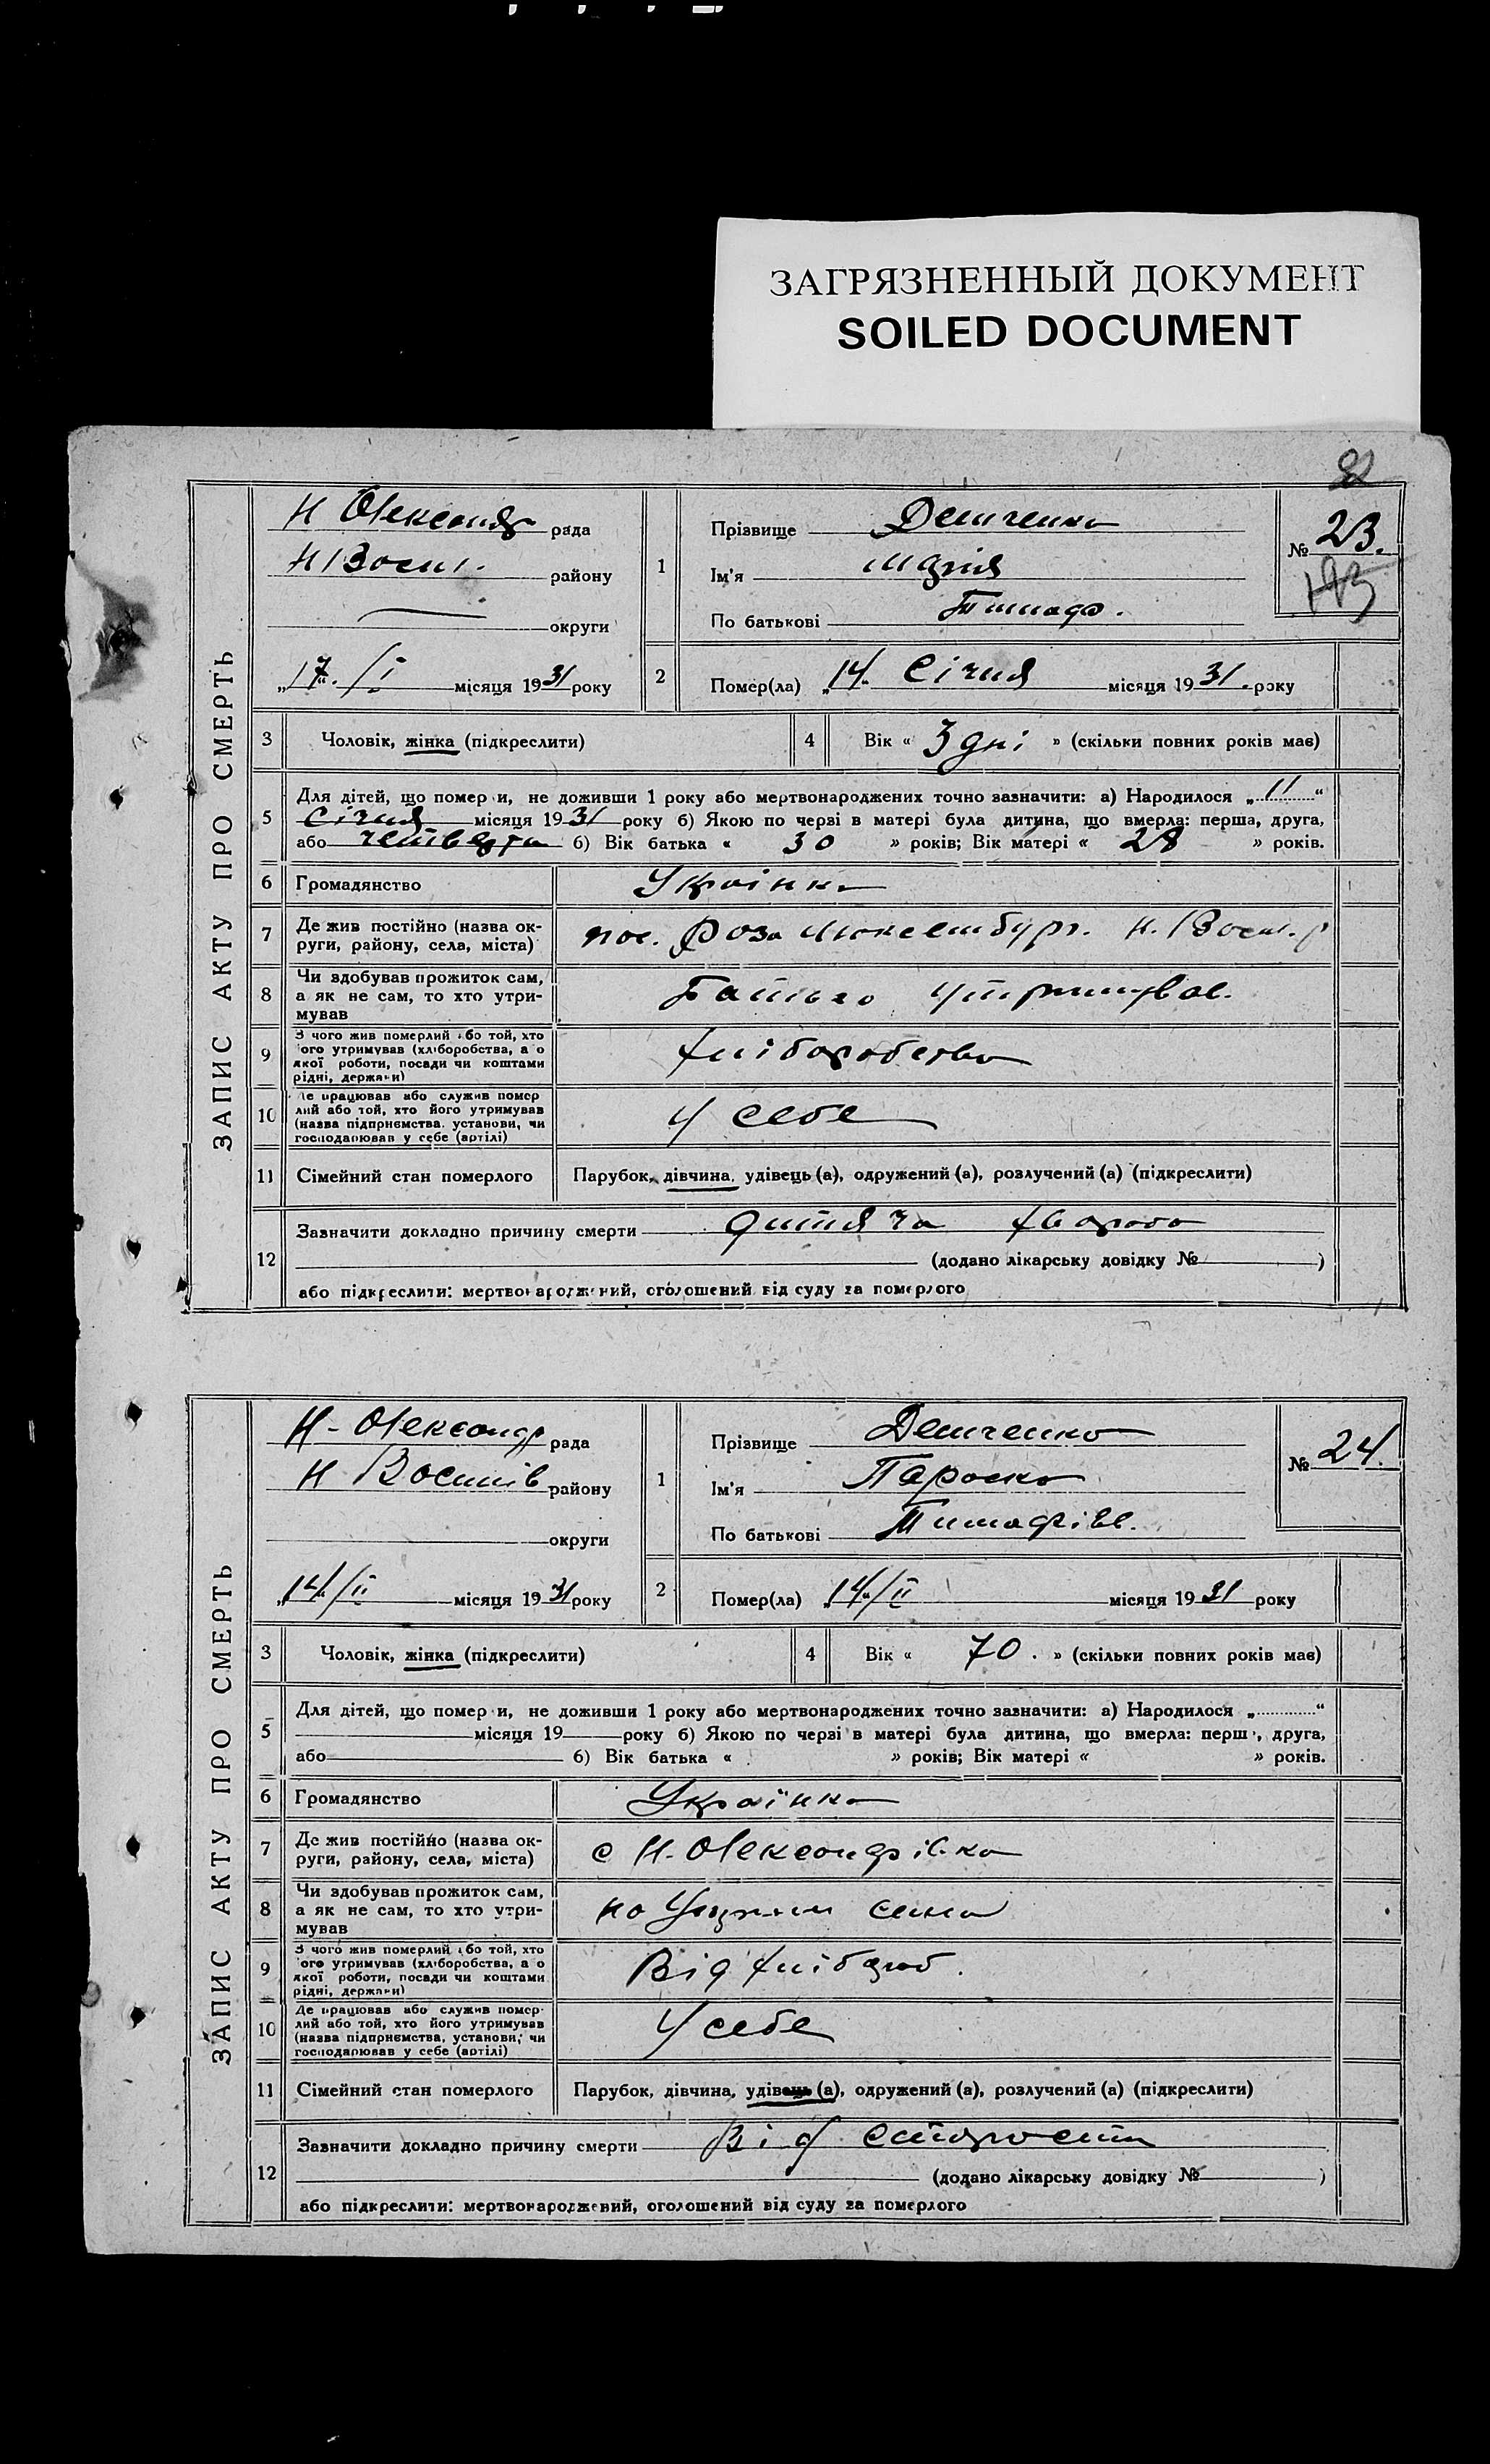 ЗАГРЯЗНЕННЫЙ ДОКУМЕНТ
SOILED DOCUMENT
ЗАПИС АКТУ ПРО СМЕРТЬ
Н Олександр рада
Н Вост. району
округи
„17“ /I місяця 1931 року
1
Прізвище Демченко
Ім'я Марія
По батькові Тимоф.
№ 23.
2
Помер(ла) „14“ Січня місяця 1931. року
3
Чоловік, жінка (підкреслити)
4
Вік « 3 дні » (скільки повних років має)
5
Для дітей, що померли, не доживши 1 року або мертвонароджених точно зазначити: а) Народилося „11“
Січня місяця 1931 року б) Якою по черзі в матері була дитина, що вмерла: перша, друга,
або четверта б) Вік батька « 30 » років; Вік матері « 28 » років.
6
Громадянство
Українка
7
Де жив постійно (назва ок-
руги, району, села, міста)
пос. Роза Люксембург. Н. Вост. р
8
Чи здобував прожиток сам,
а як не сам, то хто утри-
мував
Батько утримував.
9
З чого жив померлий або той, хто
його утримував (хліборобства, а о
якої роботи, посади чи коштами
рідні, держави)
Хліборобство
10
Де працював або служив помер
лий або той, хто його утримував
(назва підприємства, установи, чи
господарював у себе (артілі)
У себе
11
Сімейний стан померлого
Парубок, дівчина, удівець (а), одружений (а), розлучений (а) (підкреслити)
12
Зазначити докладно причину смерти дитяча хвороба
(додано лікарську довідку № )
або підкреслити: мертвонароджений, оголошений від суду за померлого
ЗАПИС АКТУ ПРО СМЕРТЬ
Н-Олександр рада
Н Востків району
округи
„14“ /II місяця 1931 року
1
Прізвище Демченко
Ім'я Параска
По батькові Тимофіїв.
№ 24.
2
Помер(ла) „14“ /II місяця 1931 року
3
Чоловік, жінка (підкреслити)
4
Вік « 70. » (скільки повних років має)
5
Для дітей, що померли, не доживши 1 року або мертвонароджених точно зазначити: а) Народилося „ “
місяця 19 року б) Якою по черзі в матері була дитина, що вмерла: перша, друга,
або б) Вік батька « » років; Вік матері « » років.
6
Громадянство
Українка
7
Де жив постійно (назва ок-
руги, району, села, міста)
с Н. Олександрівка
8
Чи здобував прожиток сам,
а як не сам, то хто утри-
мував
на сина
9
З чого жив померлий або той, хто
його утримував (хліборобства, а о
якої роботи, посади чи коштами
рідні, держави)
Від хлібороб.
10
Де працював або служив помер-
лий або той, хто його утримував
(назва підприємства, установи, чи
господарював у себе (артілі)
У себе
11
Сімейний стан померлого
Парубок, дівчина, удівець (а), одружений (а), розлучений (а) (підкреслити)
12
Зазначити докладно причину смерти Від старости
(додано лікарську довідку № )
або підкреслити: мертвонароджений, оголошений від суду за померлого